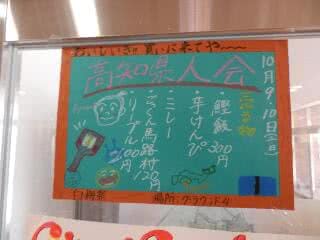 おいしいぞ!! 買いに来てや〜〜
高知県人会
10月9・10日(日)
売る物
鰹飯 300円
芋けんぴ
ミレー
ごっくん馬路村 120円
リープル 100円
白梅祭
場所:グラウンド4